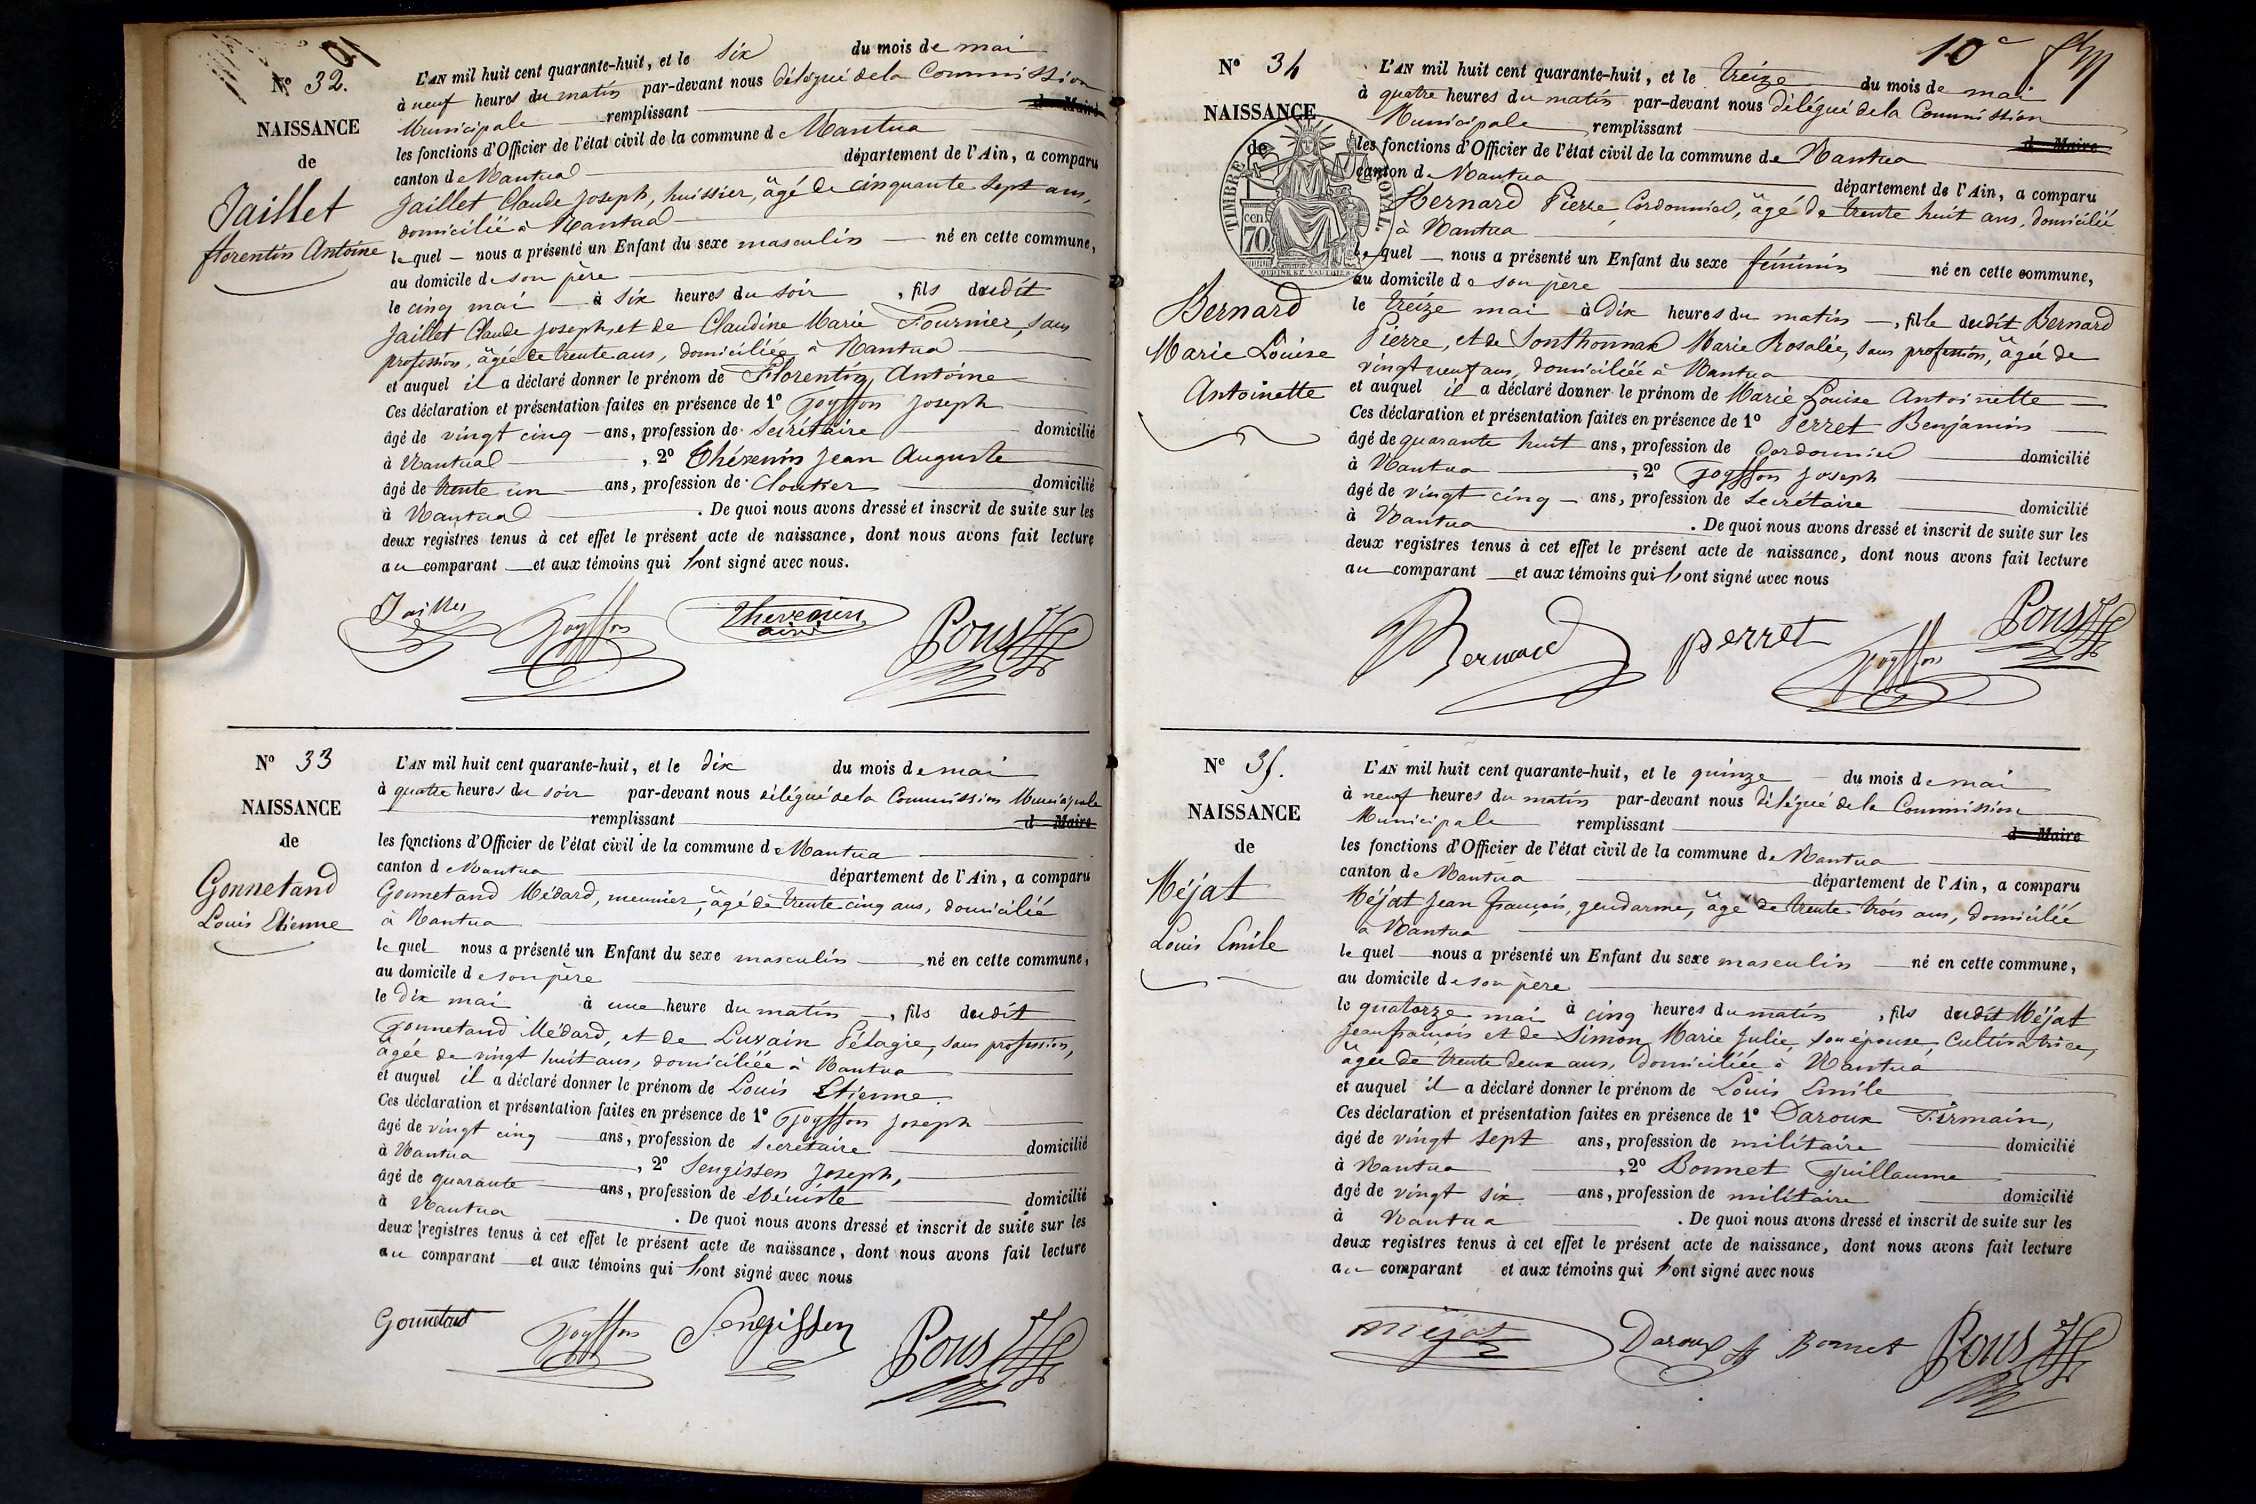 Nº 32.
NAISSANCE
de
Jaillet
florentin Antoine
L'AN mil huit cent quarante-huit, et le six du mois de mai
à neuf heures du matin par-devant nous délégué de la Commission
Municipale remplissant d Maire
les fonctions d'Officier de l'état civil de la commune de Nantua
canton de Nantua département de l'Ain, a comparu
Jaillet Claude Joseph, huissier, âgé de cinquante sept ans,
domicilié à Nantua
lequel nous a présenté un Enfant du sexe masculin né en cette commune,
au domicile de son père
le cinq mai à six heures du soir, fils dudit
Jaillet Claude Joseph, et de Claudine Marie Fournier, sans
profession, âgée de trente ans, domiciliée à Nantua
et auquel il a déclaré donner le prénom de Florentin Antoine
Ces déclaration et présentation faites en présence de 1º Goyffon Joseph
âgé de vingt cinq ans, profession de secrétaire domicilié
à Nantua, 2º Thévenin Jean Auguste
âgé de trente un ans, profession de cloutier domicilié
à Nantua. De quoi nous avons dressé et inscrit de suite sur les
deux registres tenus à cet effet le présent acte de naissance, dont nous avons fait lecture
au comparant et aux témoins qui l'ont signé avec nous.
Jaillet Goyffon Thevenin ainé Pons
Nº 33
NAISSANCE
de
Gonnetand
Louis Etienne
L'AN mil huit cent quarante-huit, et le dix du mois de mai
à quatre heures du soir par-devant nous délégué de la Commission Municipale
remplissant d Maire
les fonctions d'Officier de l'état civil de la commune de Nantua
canton de Nantua département de l'Ain, a comparu
Gonnetand Médard, meunier, âgé de trente cinq ans, domicilié
à Nantua
lequel nous a présenté un Enfant du sexe masculin né en cette commune,
au domicile de son père
le dix mai à une heure du matin, fils dudit
Gonnetand Médard, et de Luxain Pélagie, sans profession,
âgée de vingt huit ans, domiciliée à Nantua
et auquel il a déclaré donner le prénom de Louis Etienne
Ces déclaration et présentation faites en présence de 1º Goyffon Joseph
âgé de vingt cinq ans, profession de secrétaire domicilié
à Nantua, 2º Sengissen Joseph,
âgé de quarante ans, profession de ébéniste domicilié
à Nantua. De quoi nous avons dressé et inscrit de suite sur les
deux registres tenus à cet effet le présent acte de naissance, dont nous avons fait lecture
au comparant et aux témoins qui l'ont signé avec nous
Gonnetand Goyffon Sengissen Pons
10e
Nº 34
NAISSANCE
de
TIMBRE ROYAL
70 cen
Bernard
Marie Louise
Antoinette
L'AN mil huit cent quarante-huit, et le treize du mois de mai
à quatre heures du matin par-devant nous délégué de la Commission
Municipale remplissant d Maire
les fonctions d'Officier de l'état civil de la commune de Nantua
canton de Nantua département de l'Ain, a comparu
Bernard Pierre, Cordonnier, âgé de trente huit ans, domicilié
à Nantua
lequel nous a présenté un Enfant du sexe féminin né en cette commune,
au domicile de son père
le treize mai à dix heures du matin, fille dudit Bernard
Pierre, et de Sonthonnax Marie Rosalie, sans profession, âgée de
vingt neuf ans, domiciliée à Nantua
et auquel il a déclaré donner le prénom de Marie Louise Antoinette
Ces déclaration et présentation faites en présence de 1º Perret Benjamin
âgé de quarante huit ans, profession de Cordonnier domicilié
à Nantua, 2º Goyffon Joseph
âgé de vingt cinq ans, profession de secrétaire domicilié
à Nantua. De quoi nous avons dressé et inscrit de suite sur les
deux registres tenus à cet effet le présent acte de naissance, dont nous avons fait lecture
au comparant et aux témoins qui l'ont signé avec nous
Bernard perret Goyffon Pons
Nº 35.
NAISSANCE
de
Méjat
Louis Emile
L'AN mil huit cent quarante-huit, et le quinze du mois de mai
à neuf heures du matin par-devant nous délégué de la Commission
Municipale remplissant d Maire
les fonctions d'Officier de l'état civil de la commune de Nantua
canton de Nantua département de l'Ain, a comparu
Méjat Jean françois, gendarme, âgé de trente trois ans, domicilié
à Nantua
lequel nous a présenté un Enfant du sexe masculin né en cette commune,
au domicile de son père
le quatorze mai à cinq heures du matin, fils dudit Méjat
Jean françois et de Simon Marie Julie, son épouse, Cultivatrice,
âgée de trente deux ans, domiciliée à Nantua
et auquel il a déclaré donner le prénom de Louis Emile
Ces déclaration et présentation faites en présence de 1º Daroux Firmain,
âgé de vingt sept ans, profession de militaire domicilié
à Nantua, 2º Bonnet Guillaume
âgé de vingt six ans, profession de militaire domicilié
à Nantua. De quoi nous avons dressé et inscrit de suite sur les
deux registres tenus à cet effet le présent acte de naissance, dont nous avons fait lecture
au comparant et aux témoins qui l'ont signé avec nous
mejat Daroux Bonnet Pons